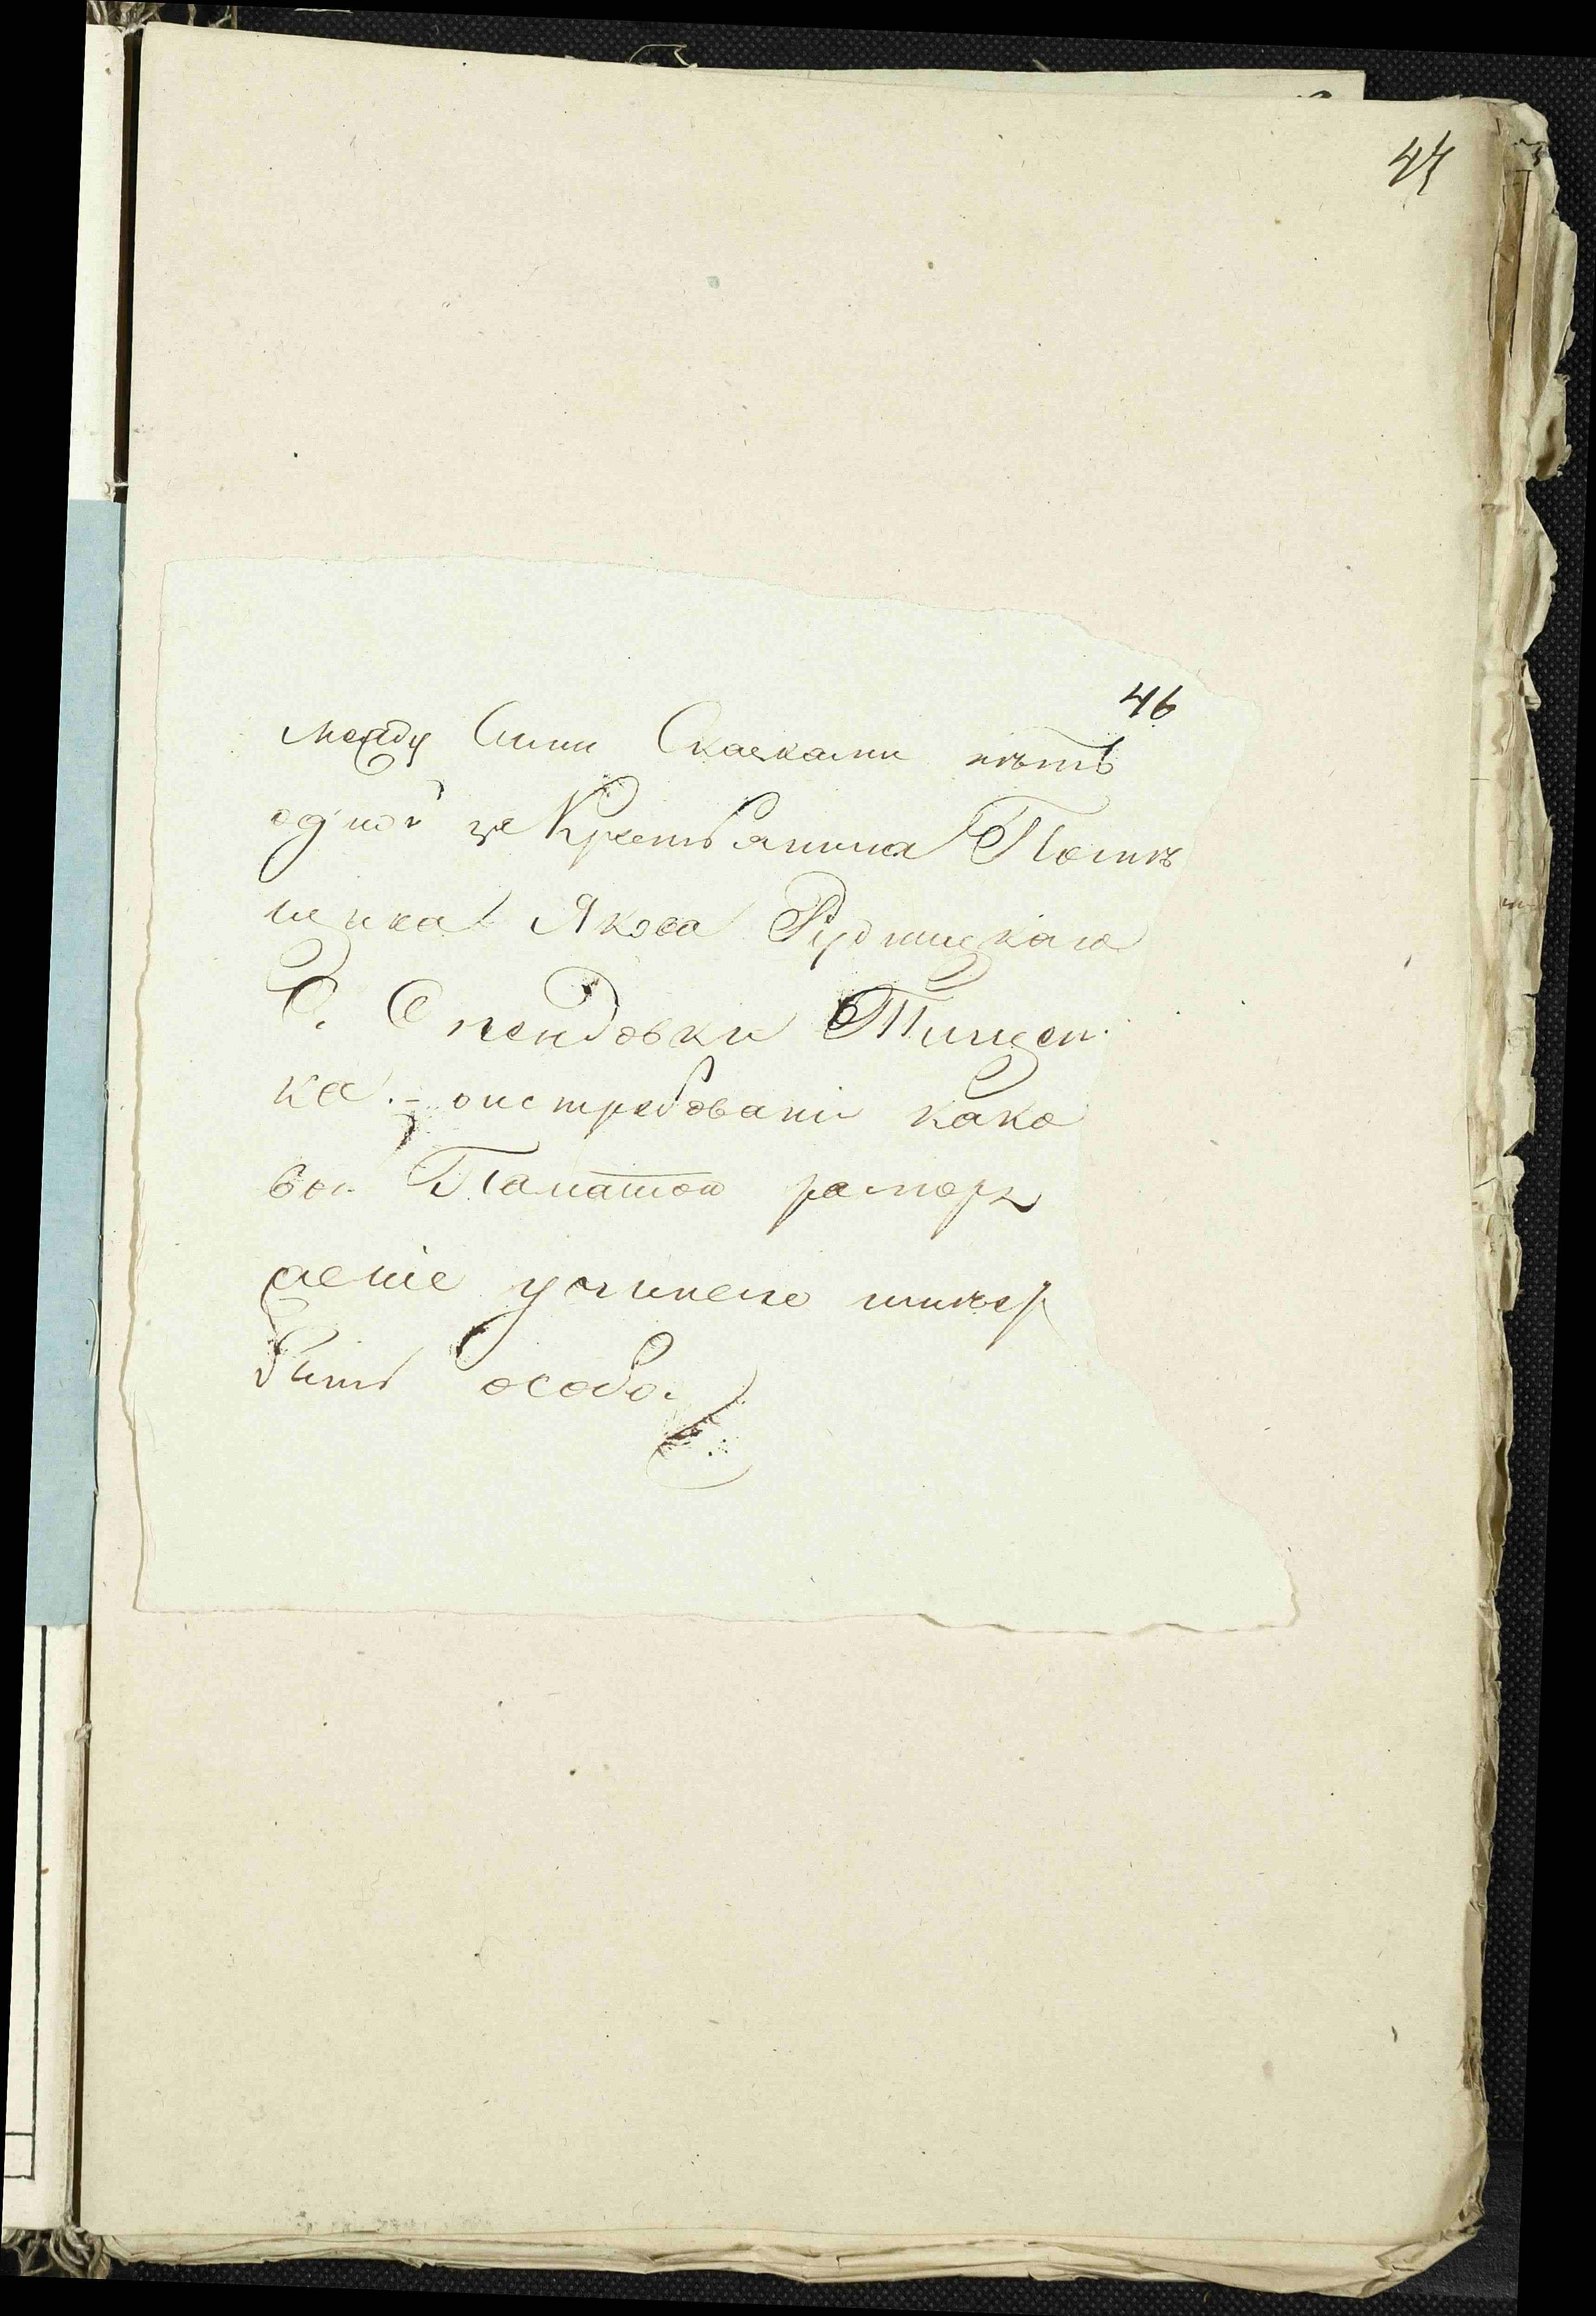 44
46
между Сими Сказками нѣтъ
одной за Крестьянина Помѣ
щика Якова Рудницкаго
С. Спендовки Тищен
ка. - оистребовани како
вой Палатою
учинено
быть особо.